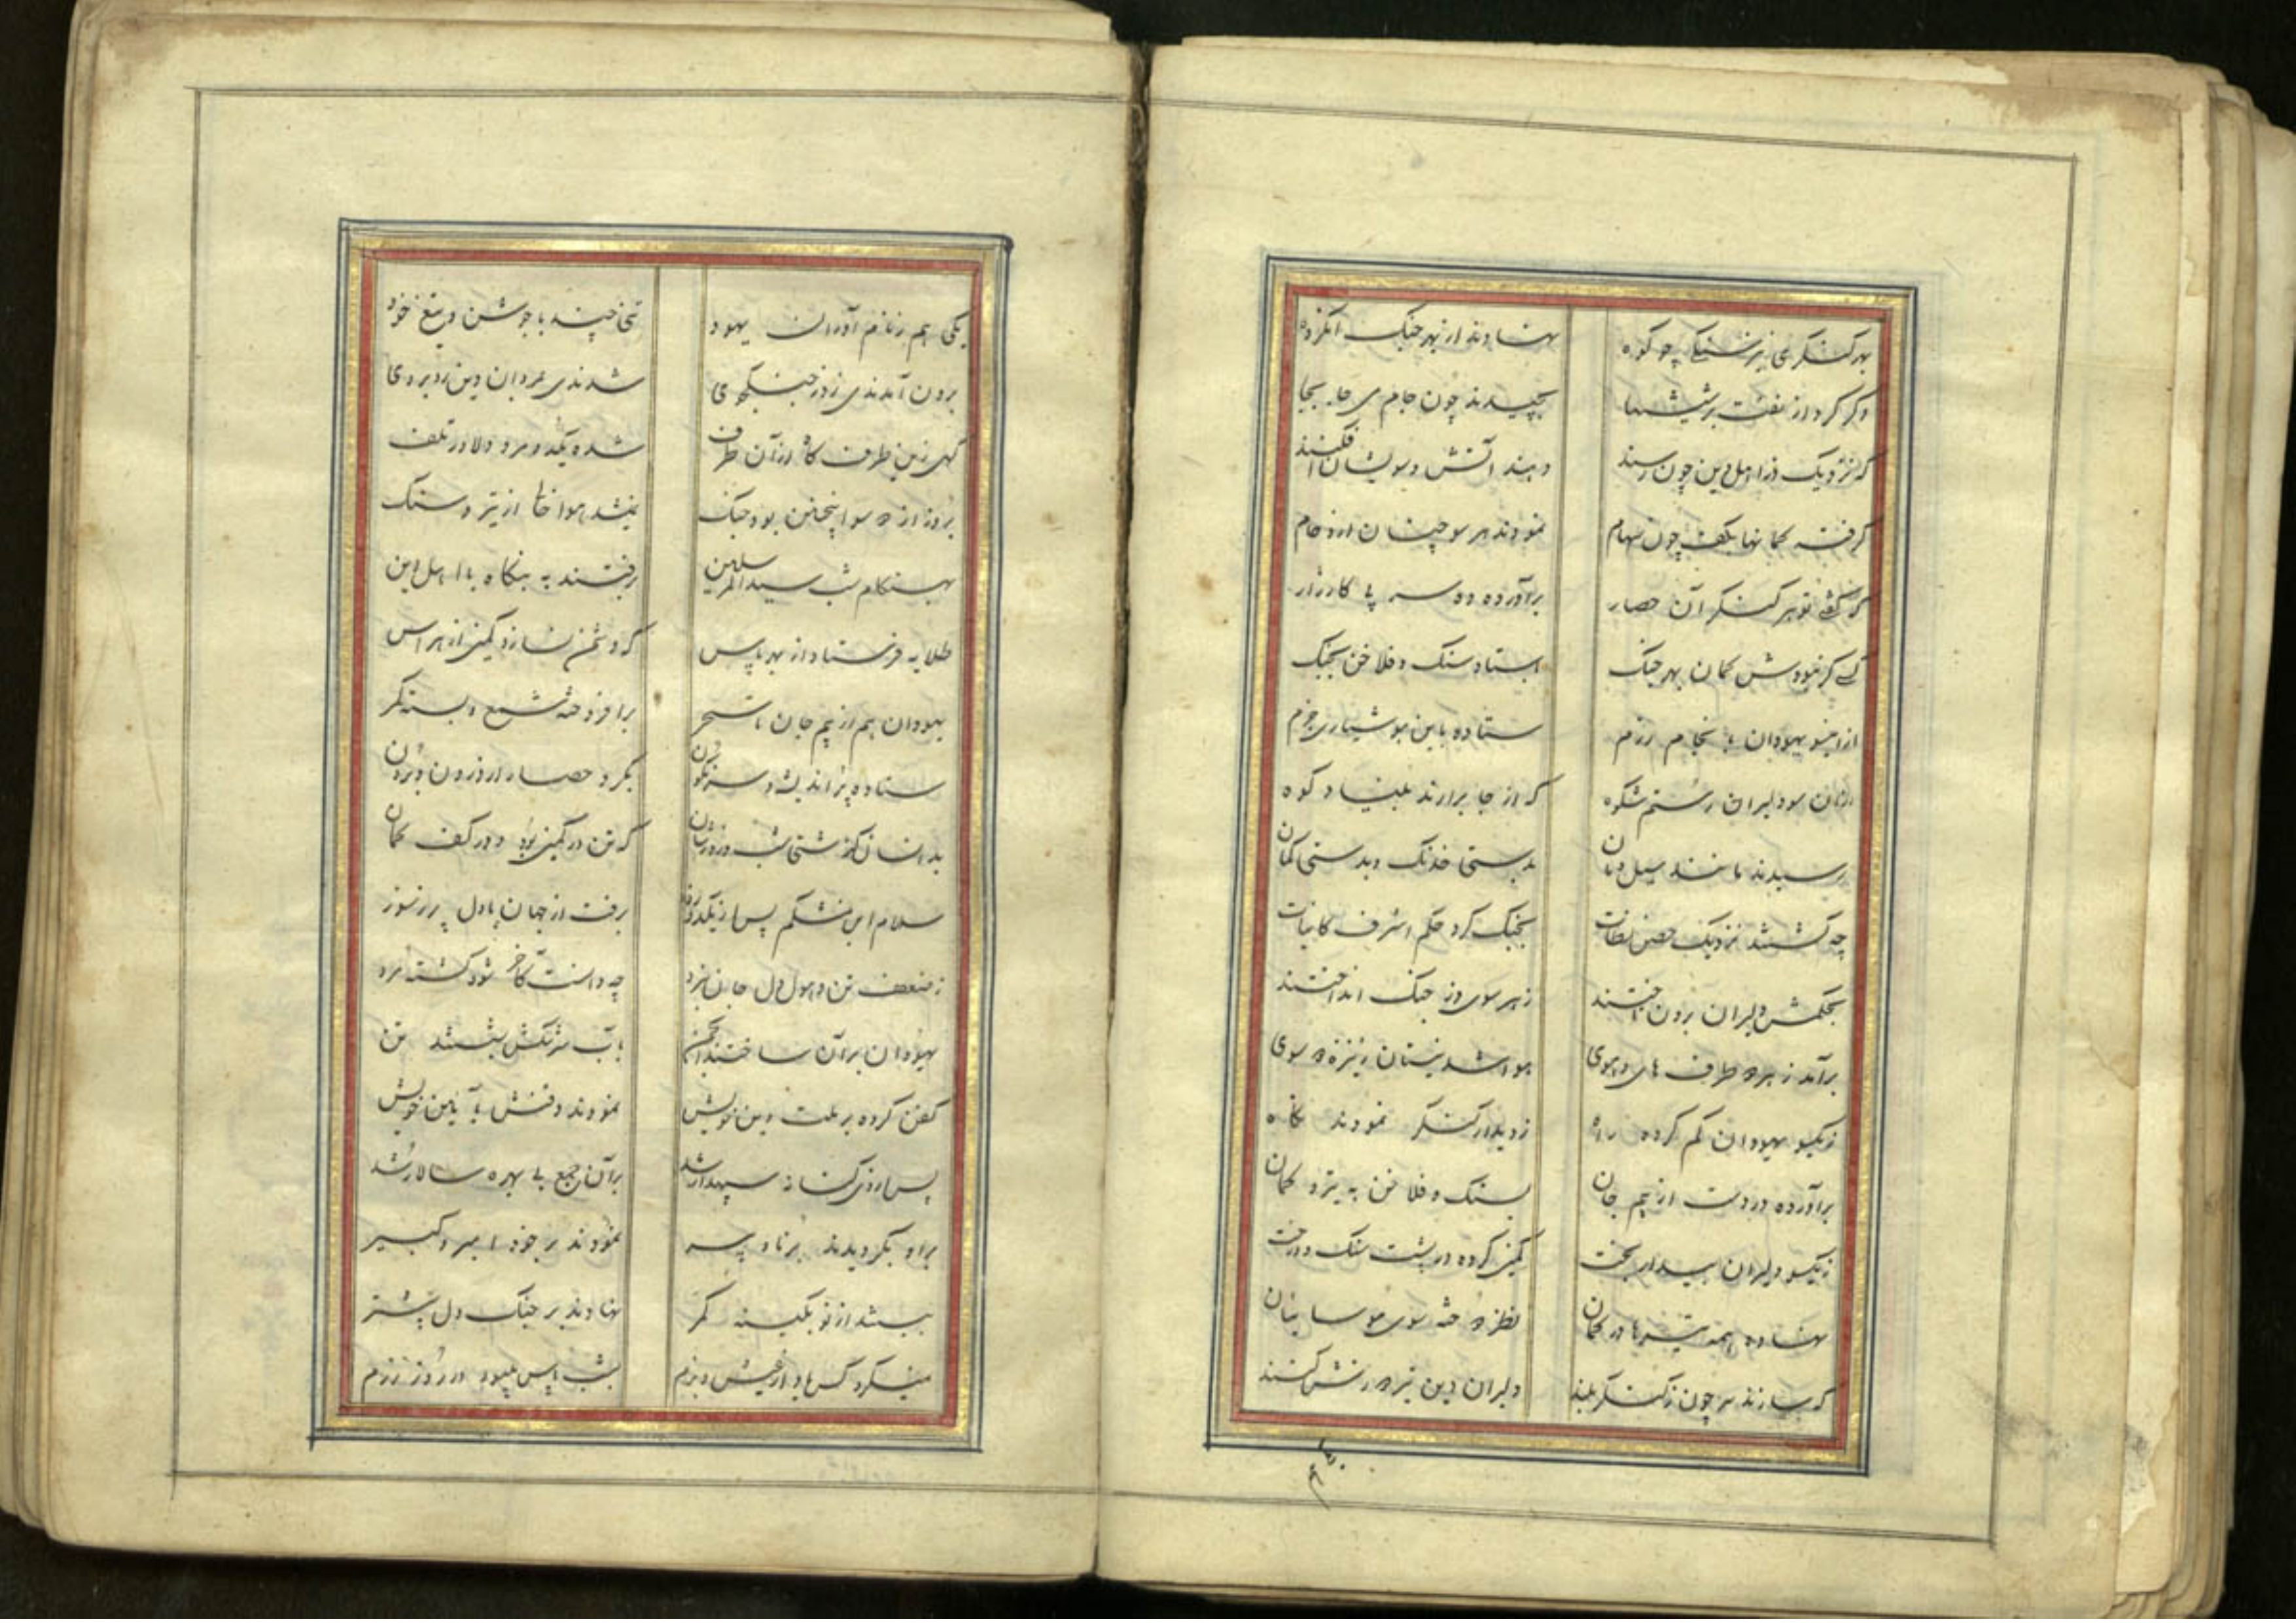 بهر کنگری بر سنگی چو کوه نهادند از بهر جنک انگروه
دگر کرد از نفت پر شیشها بچیدند چون جام می جا بجا
که نزدیک دز اهل دین چون رسند دهند آتش و بویشان افکنند
گرفته کمانها بکف چون سهام نمودند هر سو چنان ازدحام
که گفتی تو هر کنگر آن حصار برآورده دو سه پی کارزار
کسی کر نبودش کمان بهر جنک ستاد و سنک و فلاخن بچنک
از اینسو یهودان با نجام رزم ستاده باین هوشیاری و حزم
از آن سو دلیران رستم شکوه که از جا برارند بنیاد کوه
رسیدند مانند سیل دمان بدستی خدنک و بدستی کمان
چه گشتند نزدیک حصن نطات بجنک کرد حکم اشرف کاینات
بحکمش دلیران برون تاختند ز هر سوی دز جنک انداختند
برآمد ز هر دو طرف های و هوی هوا شد نیستان ز تیر دو سوی
ز یکسو یهودان گم کرده راه ز دیدار کنگر نمودند نگاه
برآورده در دست از بیم جان بسنک و فلاخن به تیر و کمان
ز یکسو دلیران بیدار بخت کمین کرده در پشت سنک و درخت
نهاده همه تیرها در کمان نظر دوخته سوی موسائیان
که سازند سر چون ز کنگر بلند دلیران دین تیر در سرش کنند
یکی هم ز نام آوران یهود
برون آمدندی ز دز جنگجوی شدندی بمردان دین روبروی
گهی زین طرف گاه از آن طرف شده یکدو مرد دلاور تلف
بروز از دو سو اینچنین بود جنک نمیشد هوا خالی از تیر و سنک
بهنگام شب سید المرسلین برفتند به بنگاه با اهل دین
طلایه فرستاد از بهر پاس که دشمن نسازد کمین از هراس
یهودان هم از بیم جان تا سحر برافروخته شمع و بسته کمر
ستاده پر اندیشه و سرنگون بگرد حصار از درون و برون
بدانسان گذشتی شب و روزشان که تن در کمین بود و در کف کمان
سلام ابن مشکم پس از یکدو روز برفت از جهان با دل پر ز سوز
ز ضعف تن و هول دل جان بمرد چه دانست کآخر شود کشته مرد
یهودان بر آن ساختند انجمن بآب سرشکش بشستند تن
کفن کرده بر ملت و دین خویش نمودند دفنش بآیین خویش
پس از وی کنانه سپهدار شد بر آن جمع بی بهره سالار شد
بر او بگرویدند برنا و پیر نمودند بر خود امیر و کبیر
ببستند از نو بکینه کمر نهادند بر جنک دل بیشتر
نمیکرد کس یاد از عیش و بزم بشب پاس میبود و در روز رزم